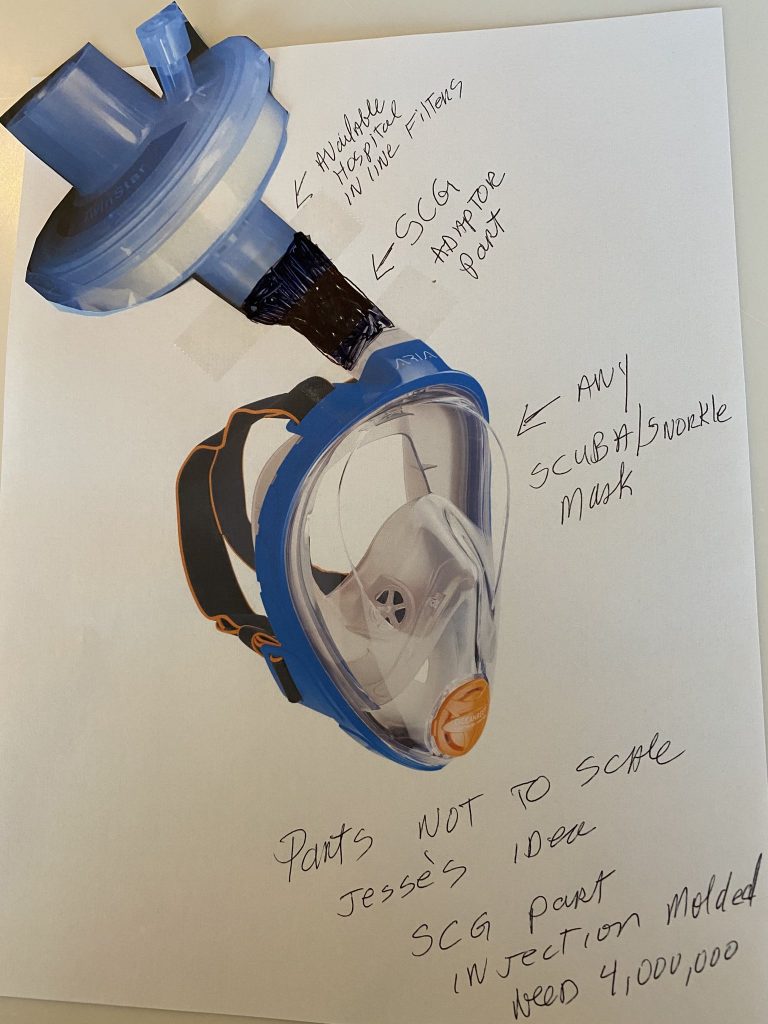 ← AVAilABle
Hospital
IN liNe Filters
← SCG
ADAPTOR
Part
ARIA
← ANY
SCUBA/SNorkle
Mask
Parts NOT TO SCAle
Jesse's iDea
SCG part
iNJection Molded
Need 4,000,000